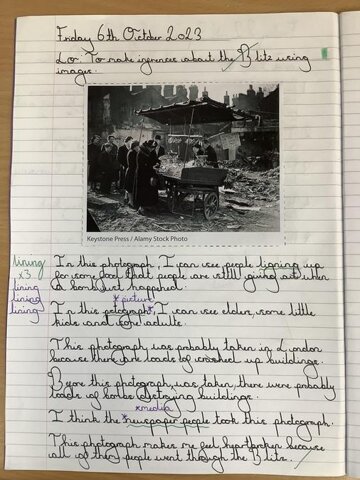 Friday 6th October 2023
Lo: To make inferences about the Blitz using
images.
Keystone Press / Alamy Stock Photo
lining
x3
lining
lining
lining
In this photograph, I can see people ligning up
for some food that people are still giving out when
a bomb just happened.
*picture
In this potograph*, I can see elders, some little
kids and some adults.
This photograph was probably taken in London
because there are loads of crushed up buildings.
Before this photograph was taken, there were probably
loads of bombs destroying buildings.
*media
I think the *newspaper people took this photograph.
This photograph makes me feel heartbroken because
all of these people went through the Blitz.